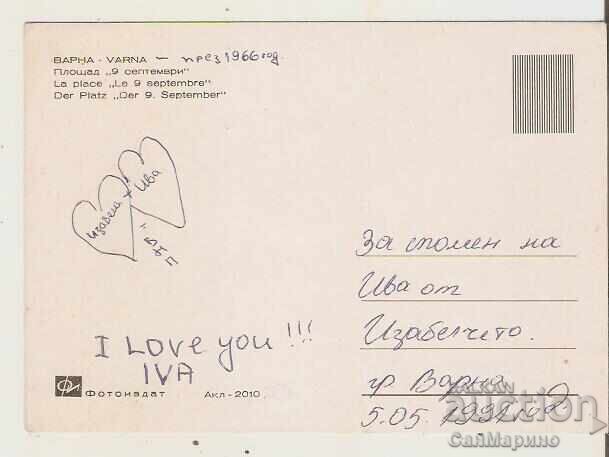 ВАРНА - VARNA – през 1966 год.
Площад „9 септември"
La place „Le 9 septembre"
Der Platz „Der 9. September"
Изабела + Ива
За спомен на
Ива от
Изабелчето.
гр. Варна
5.05.1991г.
I Love you!!!
IVA
Фотоиздат Акл-2010
auction
СанМарино